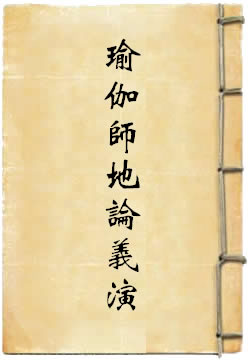 瑜伽師地論義演